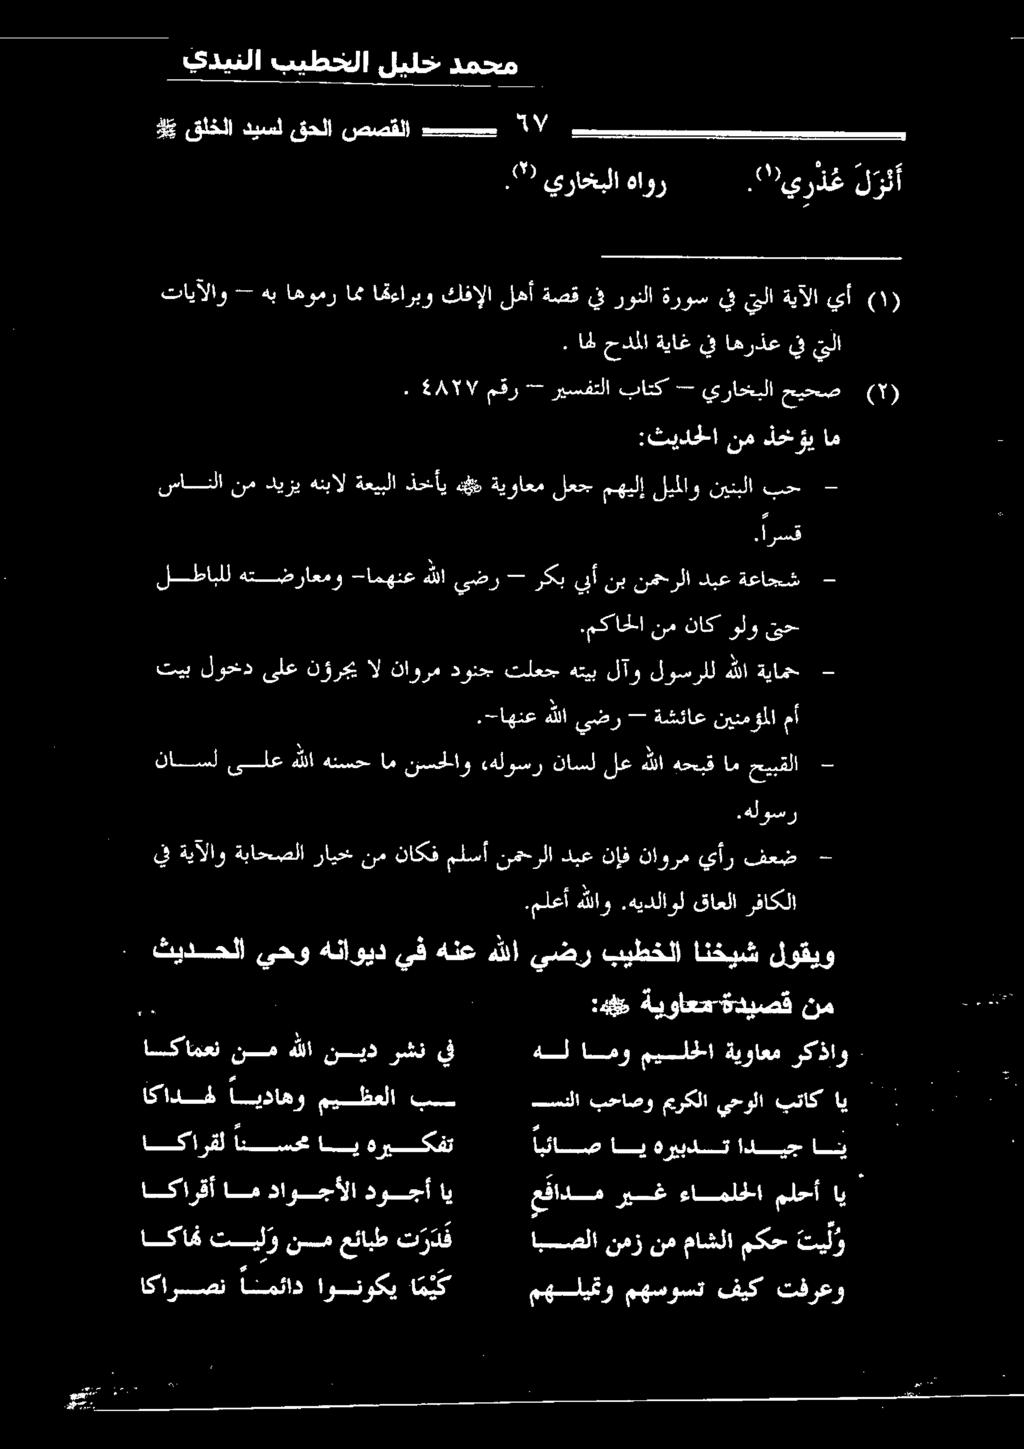 محمد خليل الخطيب النيدي
٦٧ القصص الحق لسيد الخلق ﷺ
أَنْزَلَ عُذْرِي(١). رواه البخاري(٢).
(١) أي الآية التي في سورة النور في قصة أهل الإفك وبراءتها مما رموها به – والآيات
التي في عذرها في غاية المدح لها .
(٢) صحيح البخاري – كتاب التفسير – رقم ٤٨٢٧ .
ما يؤخذ من الحديث:
- حب البنين والميل إليهم جعل معاوية ﷺ يأخذ البيعة لابنه يزيد من النــاس
قسراً.
- شجاعة عبد الرحمن بن أبي بكر – رضي الله عنهما- ومعارضــته للباطــل
حتى ولو كان من الحاكم.
- حماية الله للرسول وآل بيته جعلت جنود مروان لا يجرؤن على دخول بيت
أم المؤمنين عائشة – رضي الله عنها-.
- القبيح ما قبحه الله عل لسان رسوله، والحسن ما حسنه الله علــى لســان
رسوله.
- ضعف رأي مروان فإن عبد الرحمن أسلم فكان من خيار الصحابة والآية في
الكافر العاق لوالديه. والله أعلم.
ويقول شيخنا الخطيب رضي الله عنه في ديوانه وحي الحــديث
من قصيدة معاوية ﷺ:
واذكر معاوية الحلــيم ومــا لــه في نشر ديــن الله مــن نعماكــا
يا كاتب الوحي الكريم وصاحب النســ ــب العظــيم وهاديــاً لهــداكا
يــا جيــدا تــدبيره يــا صــائباً تفكــيره يــا محســناً لقراكــا
يا أحلم الحلمــاء غــير مــدافَعٍ يا أجــود الأجــواد مــا أقراكــا
وُلِّيتَ حكم الشام من زمن الصــبا قَدَرَت طبائع مــن وَلِيــت نهاكــا
وعرفت كيف تسوسهم وتميلــهم كَيْمَا يكونــوا دائمــاً نصــراكا